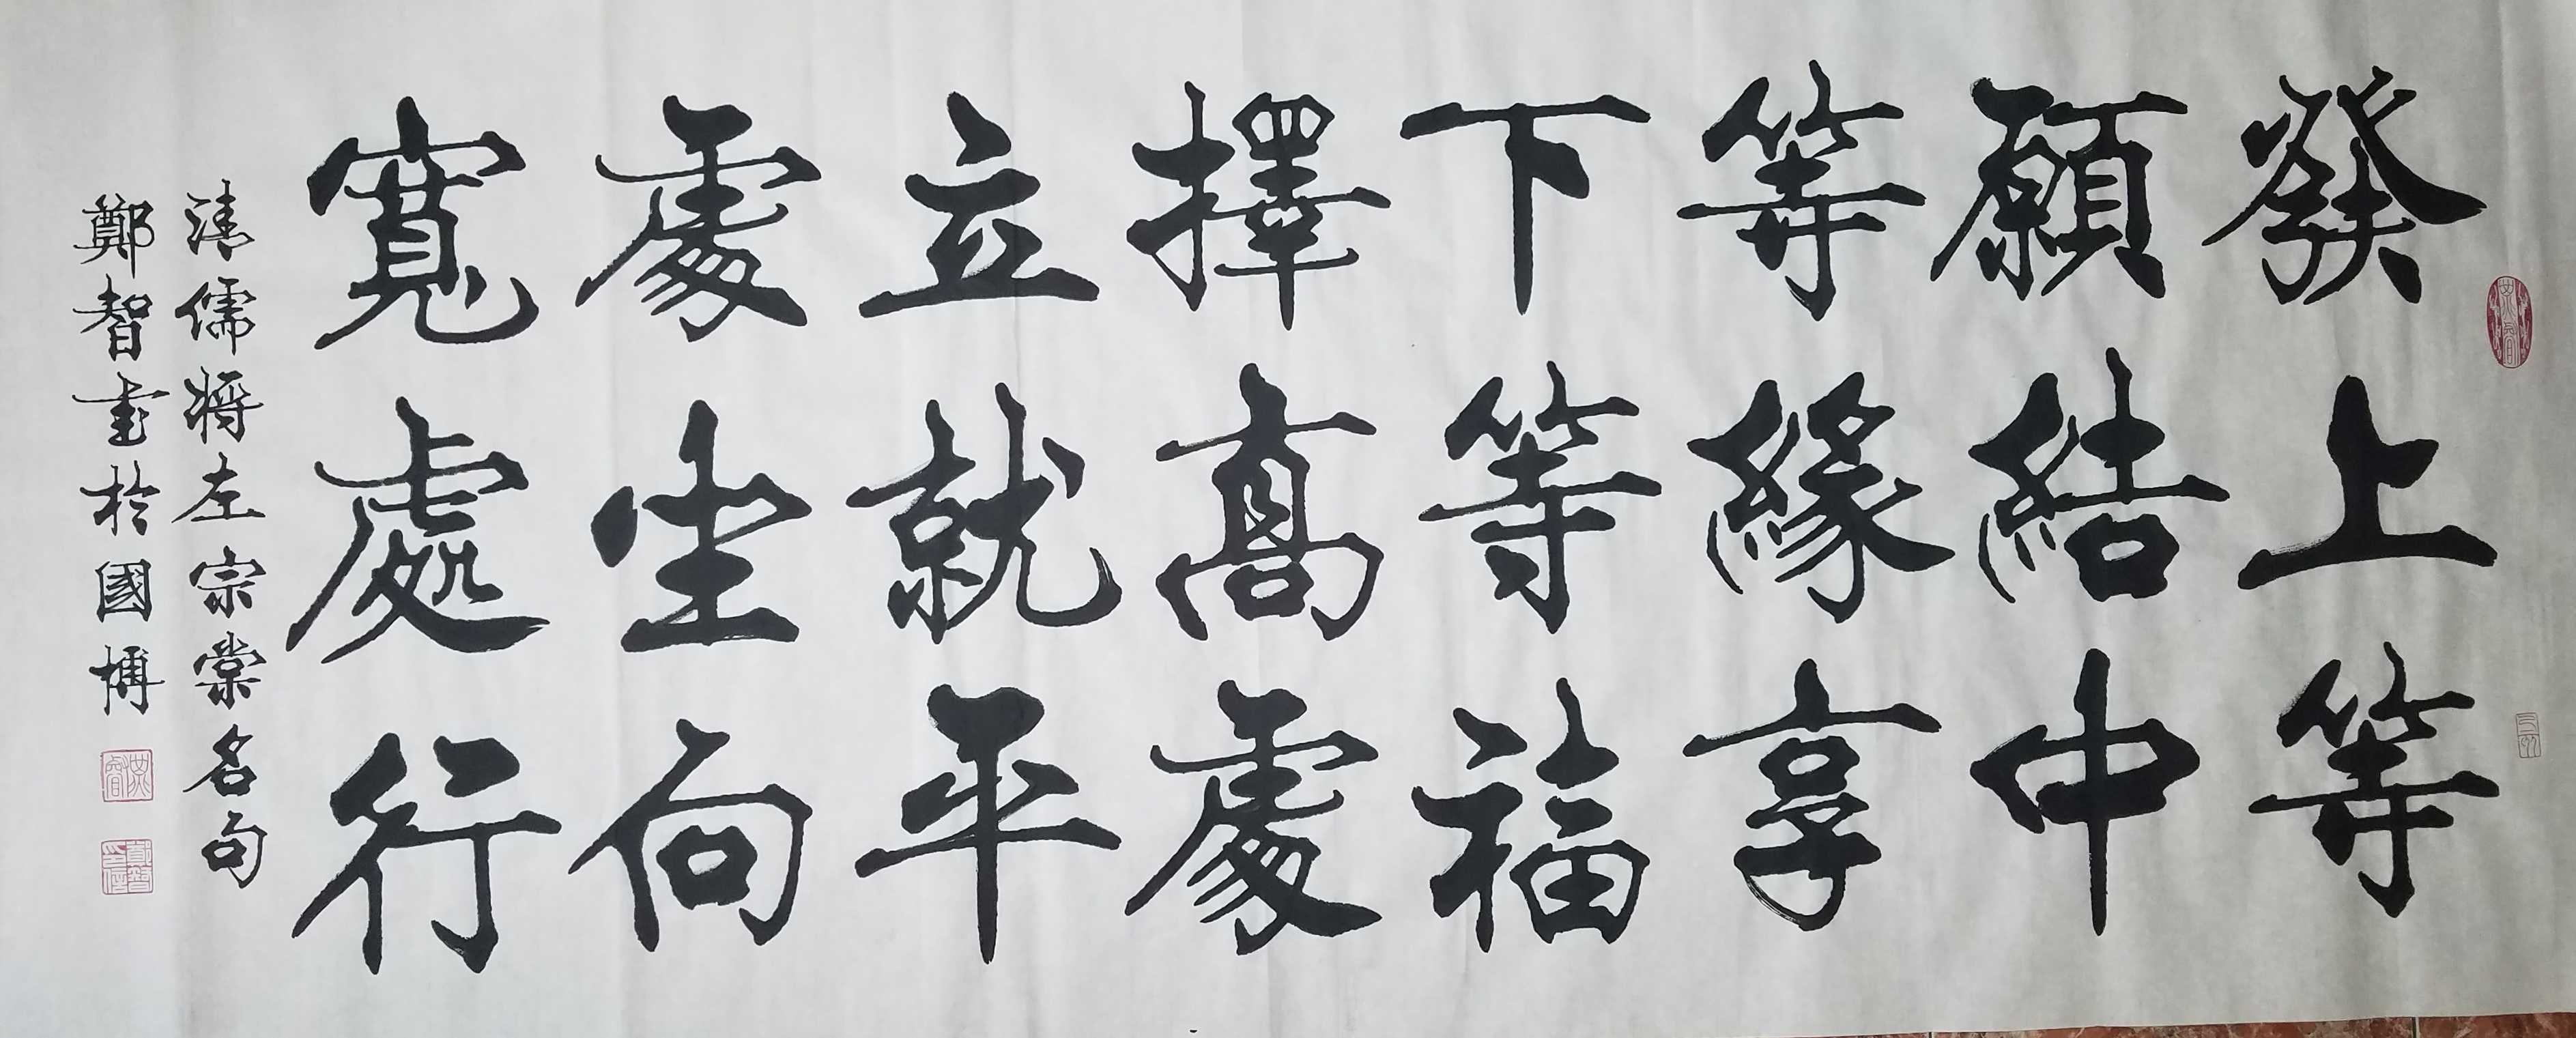 發上等
願結中
等緣享
下等福
擇高處
立就平
處坐向
寬處行
清儒將左宗棠名句
鄭智書於國博